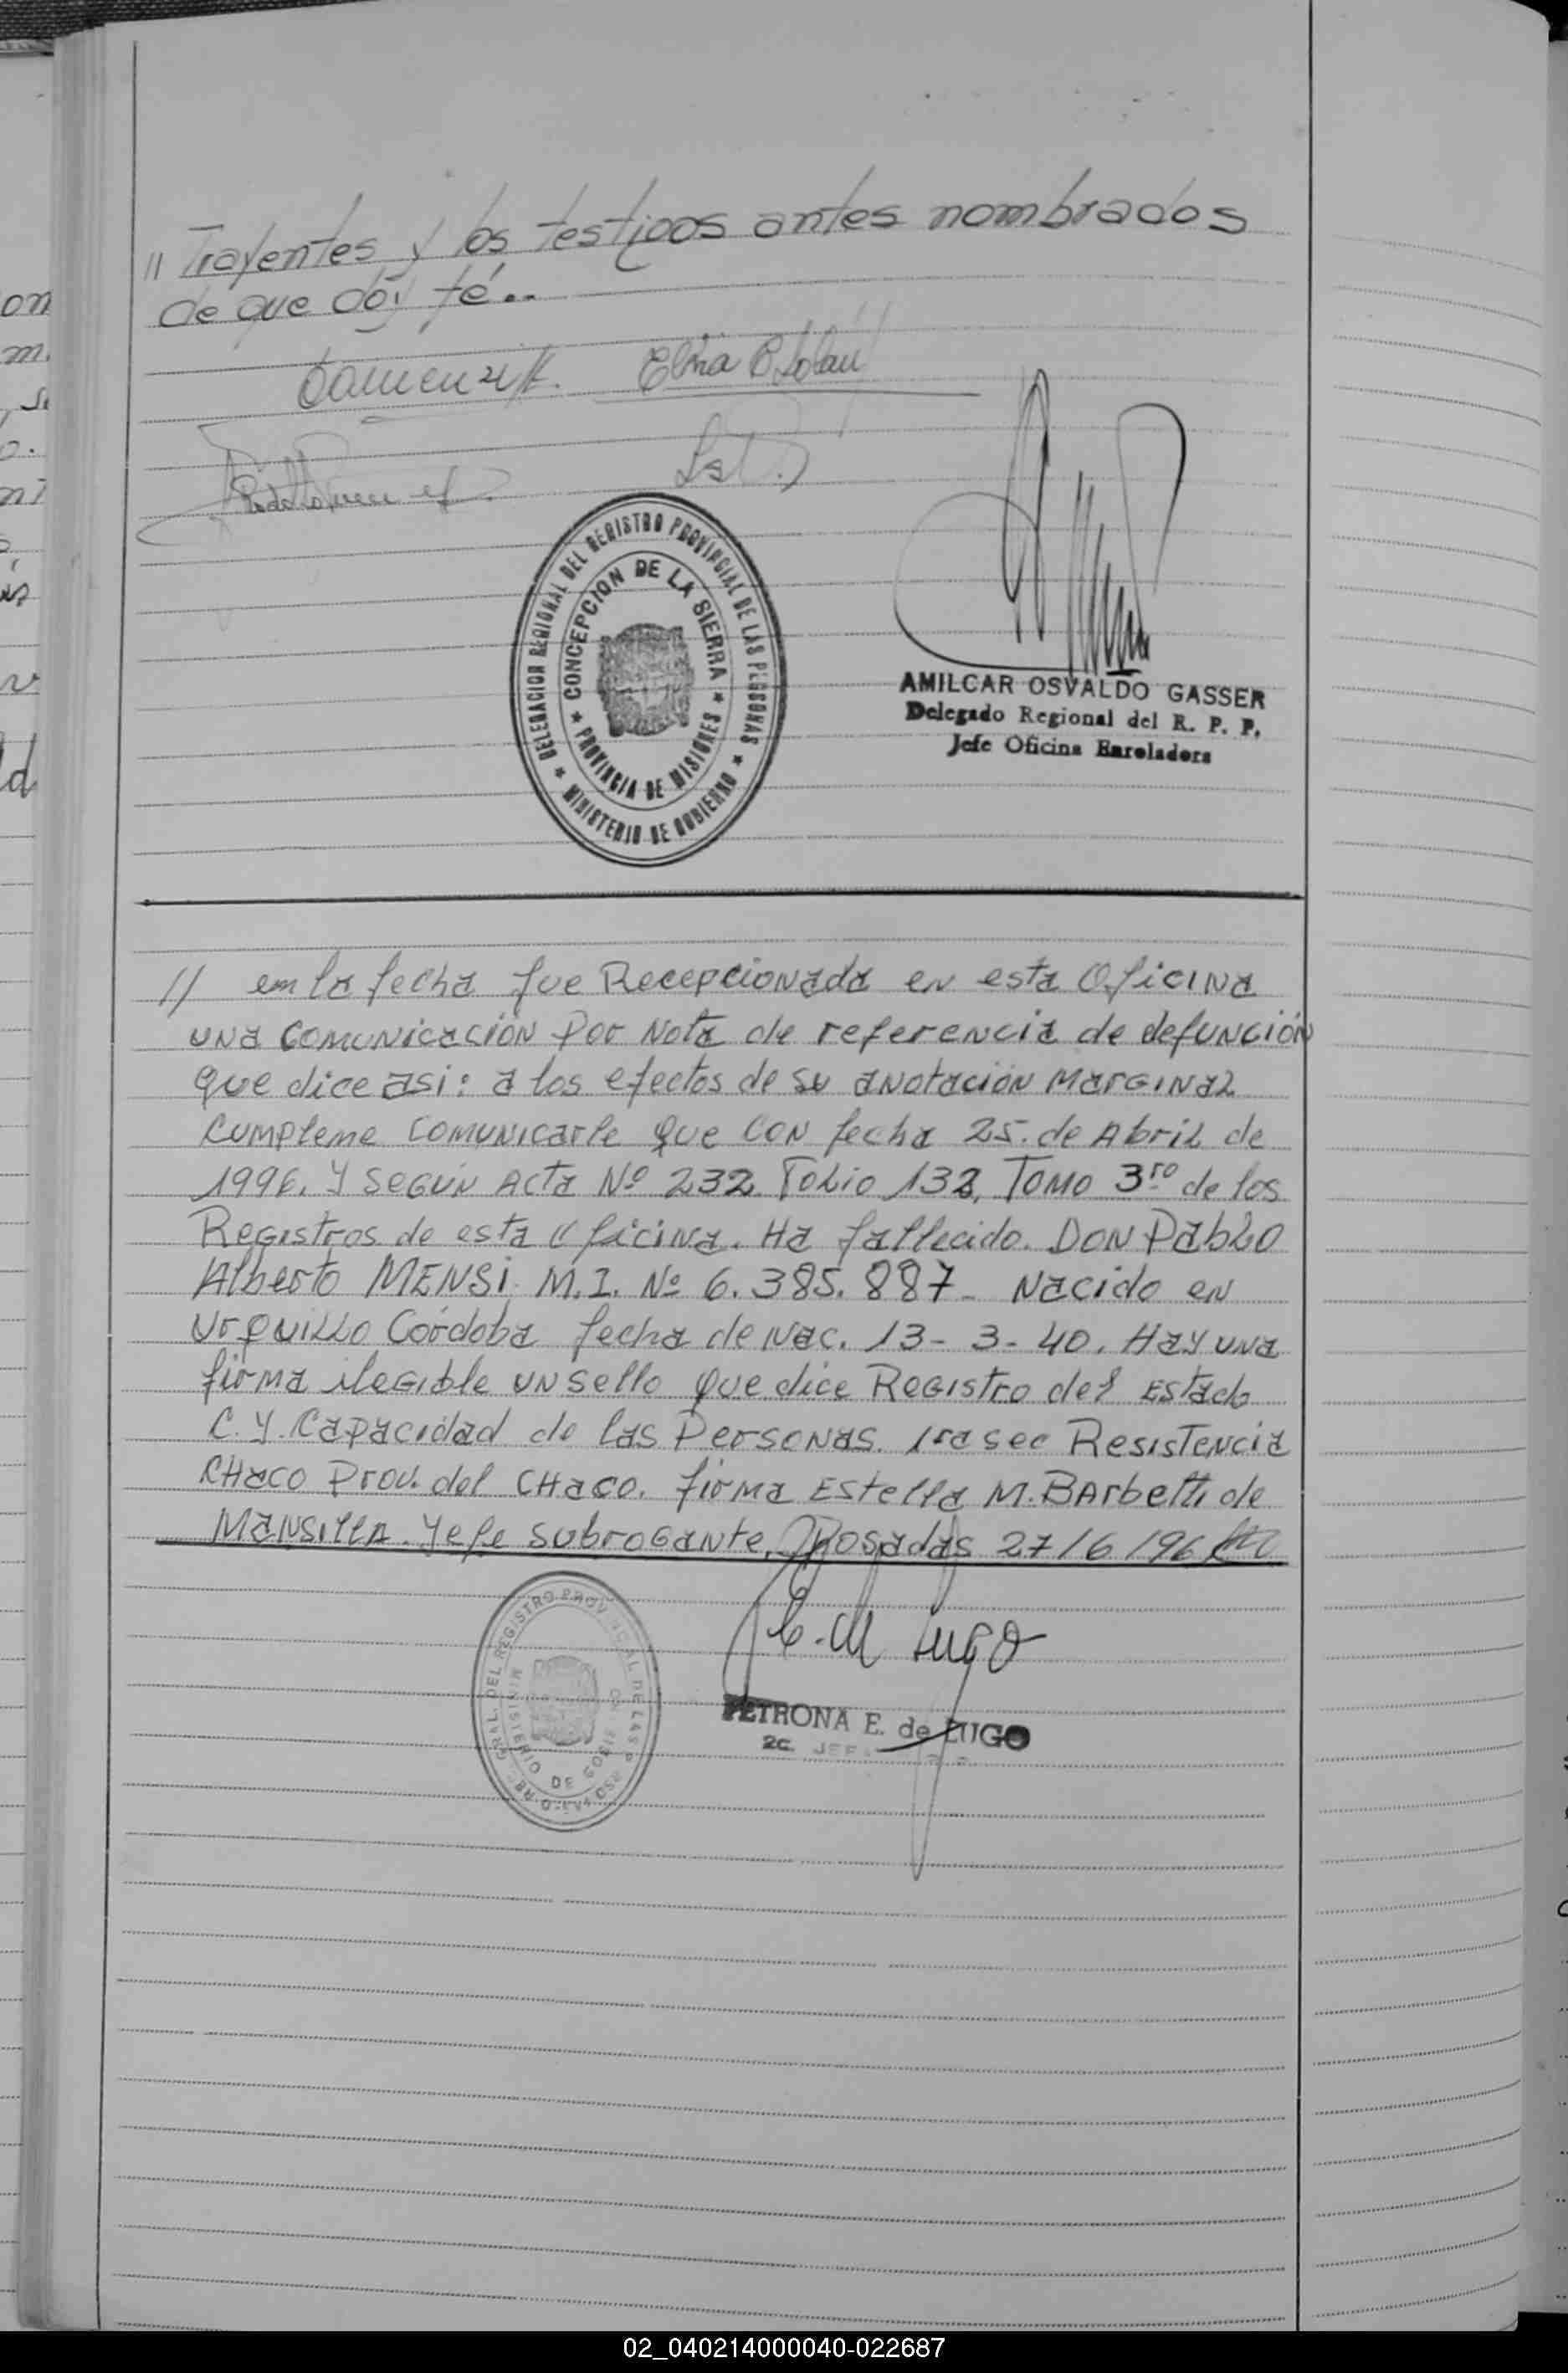 // Trayentes y los testigos antes nombrados
de que doy fé..
Elsa B
DELEGACION REGIONAL DEL REGISTRO PROVINCIAL DE LAS PERSONAS
★ MINISTERIO DE GOBIERNO ★
★ CONCEPCION DE LA SIERRA ★
PROVINCIA DE MISIONES
AMILCAR OSVALDO GASSER
Delegado Regional del R. P. P.
Jefe Oficina Enroladora
// en la fecha fue Recepcionada en esta Oficina
una comunicación por Nota de referencia de defunción
que dice asi: a los efectos de su anotación Marginal
Cumpleme comunicarle que con fecha 25. de Abril de
1996. Y según Acta Nº 232 Folio 132, Tomo 3ro de los
Registros de esta Oficina. Ha fallecido. Don Pablo
Alberto MENSI. M.I. Nº 6.385.887- Nacido en
Urquillo Córdoba fecha de Nac. 13-3-40. Hay una
firma ilegible un sello que dice Registro del Estado
C. Y. Capacidad de las Personas. 1ra sec Resistencia
CHaco Prov. del CHaco. firma Estella M. Barbetti de
Mansilla. Jefe subrogante, Posadas 27/6/96
E. de Lugo
PETRONA E. de LUGO
2c. JEF
GRAL. DEL REGISTRO PROVINCIAL DE LAS P
02_040214000040-022687